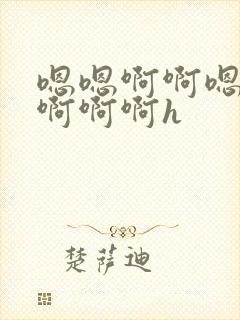 嗯嗯啊啊嗯
啊啊啊h
楚萨迪